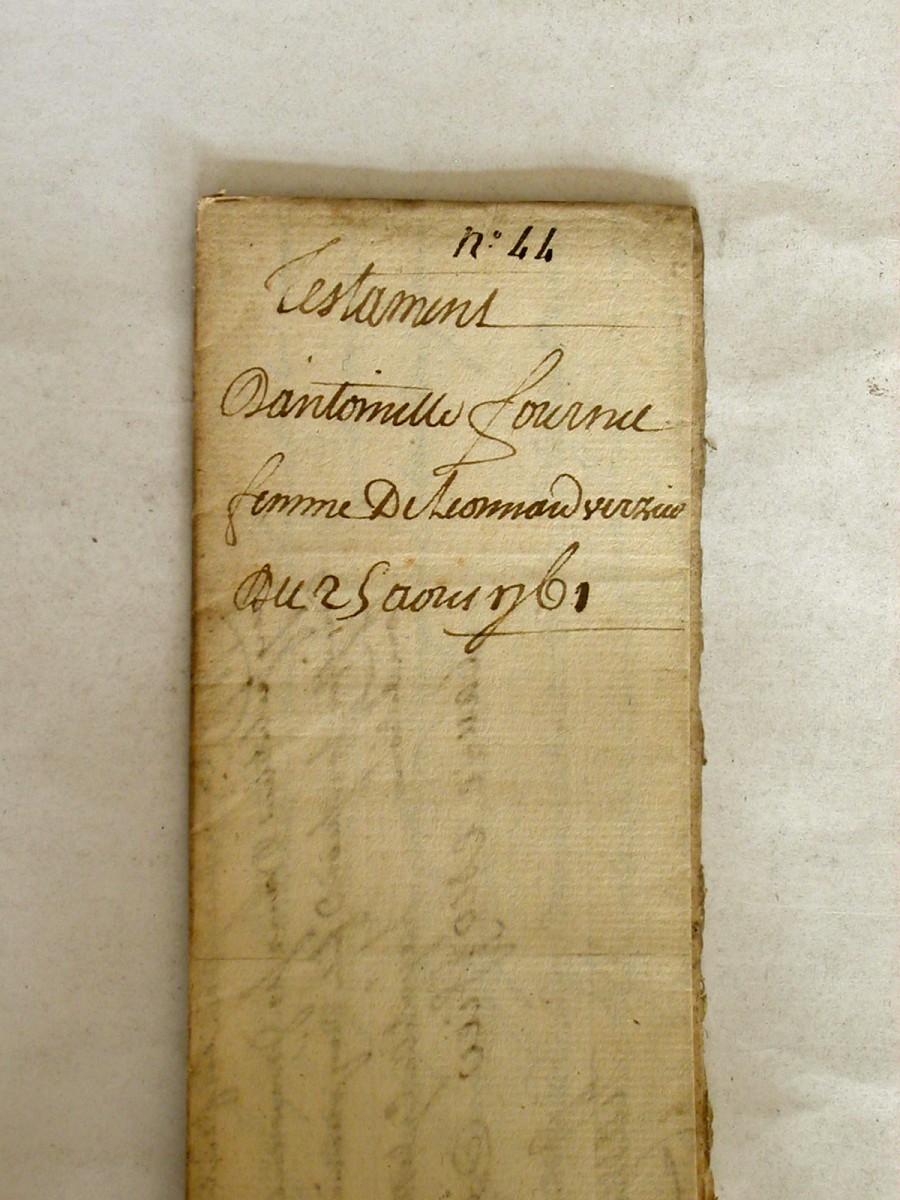 n° 44
Testament
Dantoinelle fournie
femme De Leonnard
Du 25 aoust 1761